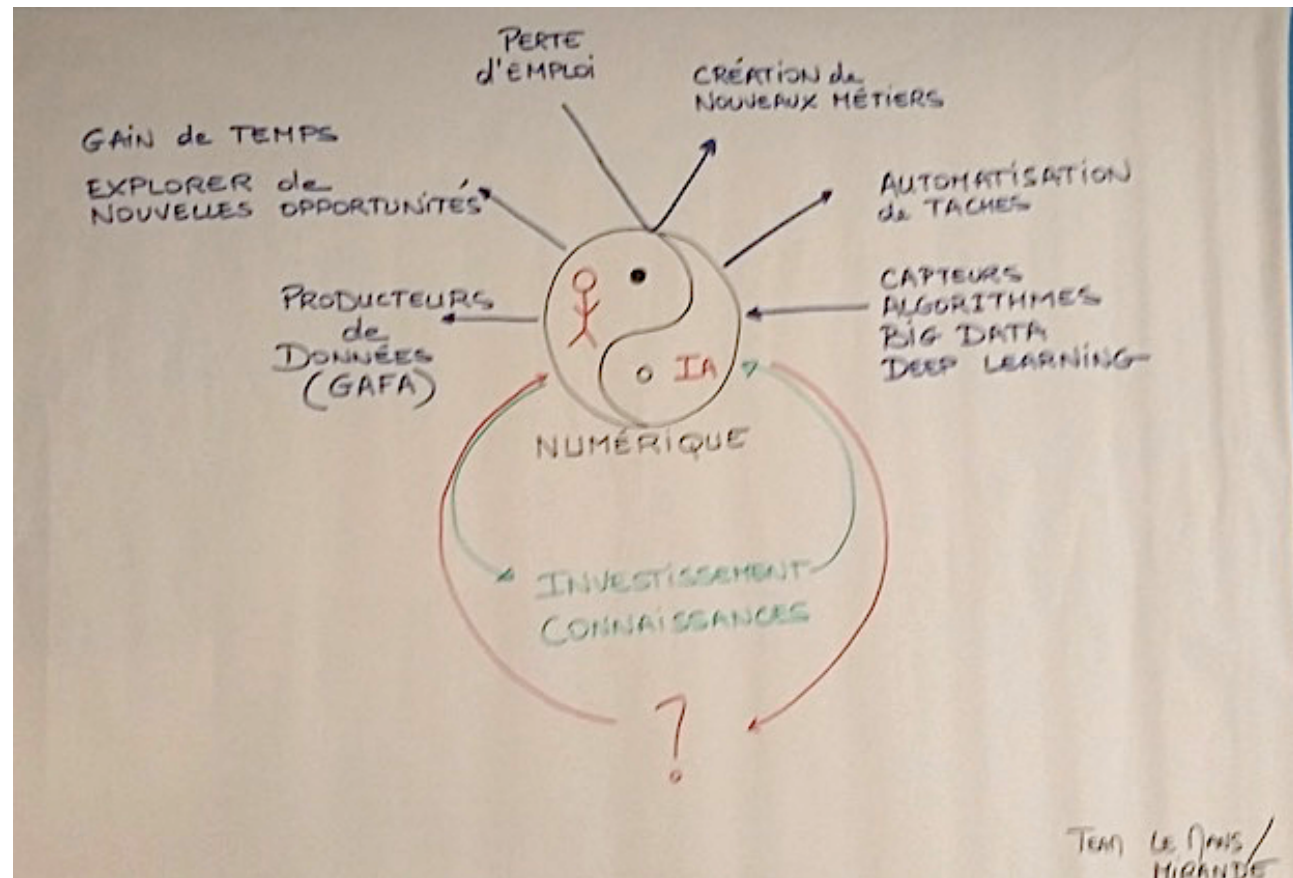 PERTE
d'EMPLOI
CRÉATION de
NOUVEAUX MÉTIERS
GAIN de TEMPS
EXPLORER de
NOUVELLES OPPORTUNITÉS
AUTOMATISATION
de TACHES
PRODUCTEURS
de
DONNÉES
(GAFA)
CAPTEURS
ALGORITHMES
BIG DATA
DEEP LEARNING
IA
NUMÉRIQUE
INVESTISSEMENT
CONNAISSANCES
?
TEAM LE MANS /
MIRANDE